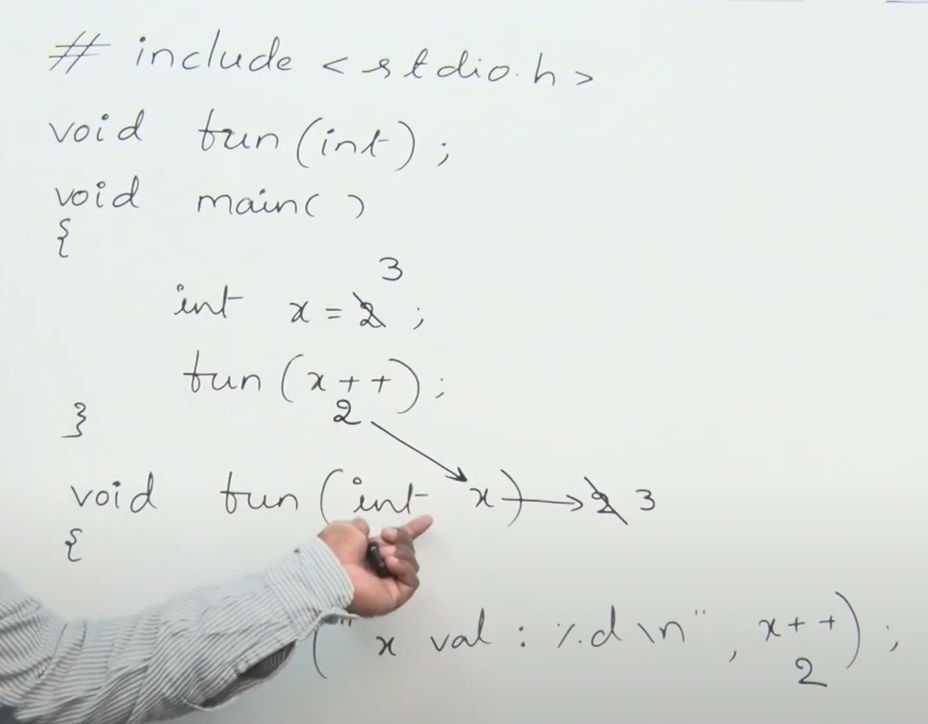 # include <stdio.h>
void fun(int);
void main()
{
3
int x = 2;
fun(x++);
2
}
void fun(int x) → 2 3
{
("x val : %d\n", x++);
2